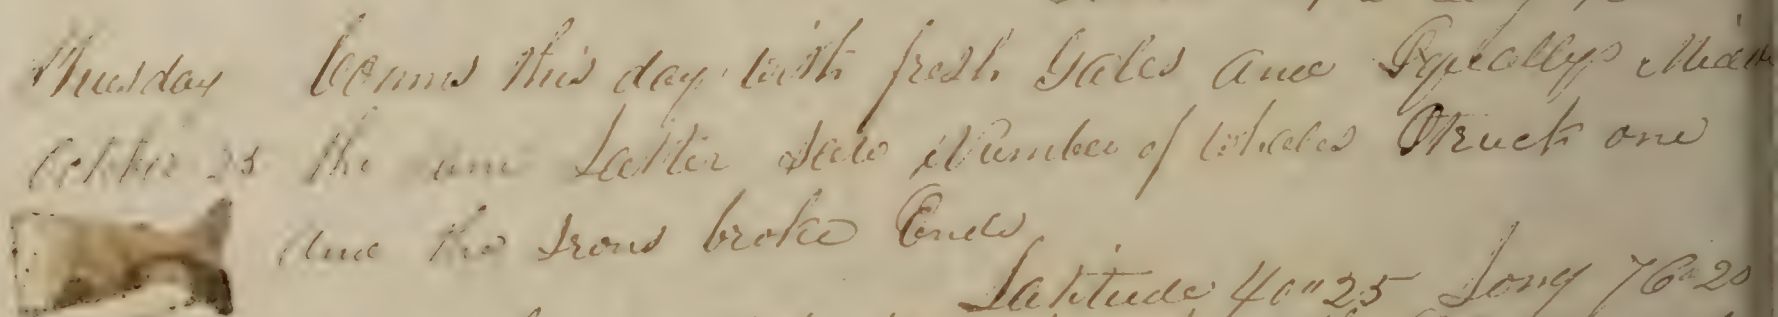 Thursday Comms this day with fresh Gales and Squally Midd
October 25 the same Latter saw Number of Whales Struck one
and the Irons broke Ends
Latitude 40"25 Long 76"20